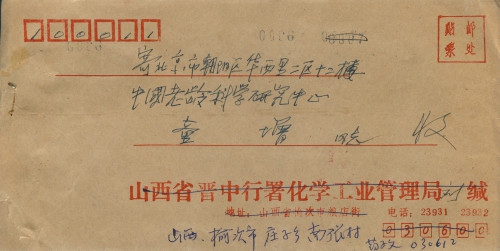 100011
贴邮
票处
寄北京市朝阳区华西里二区十二楼
中国老龄科学研究中心
童增 同志 收
山西省晋中行署化学工业管理局 缄
地址:山西省榆次市顺店街 电话:23931 23932
030600
山西、榆次市庄子乡南张村
邮政 030612